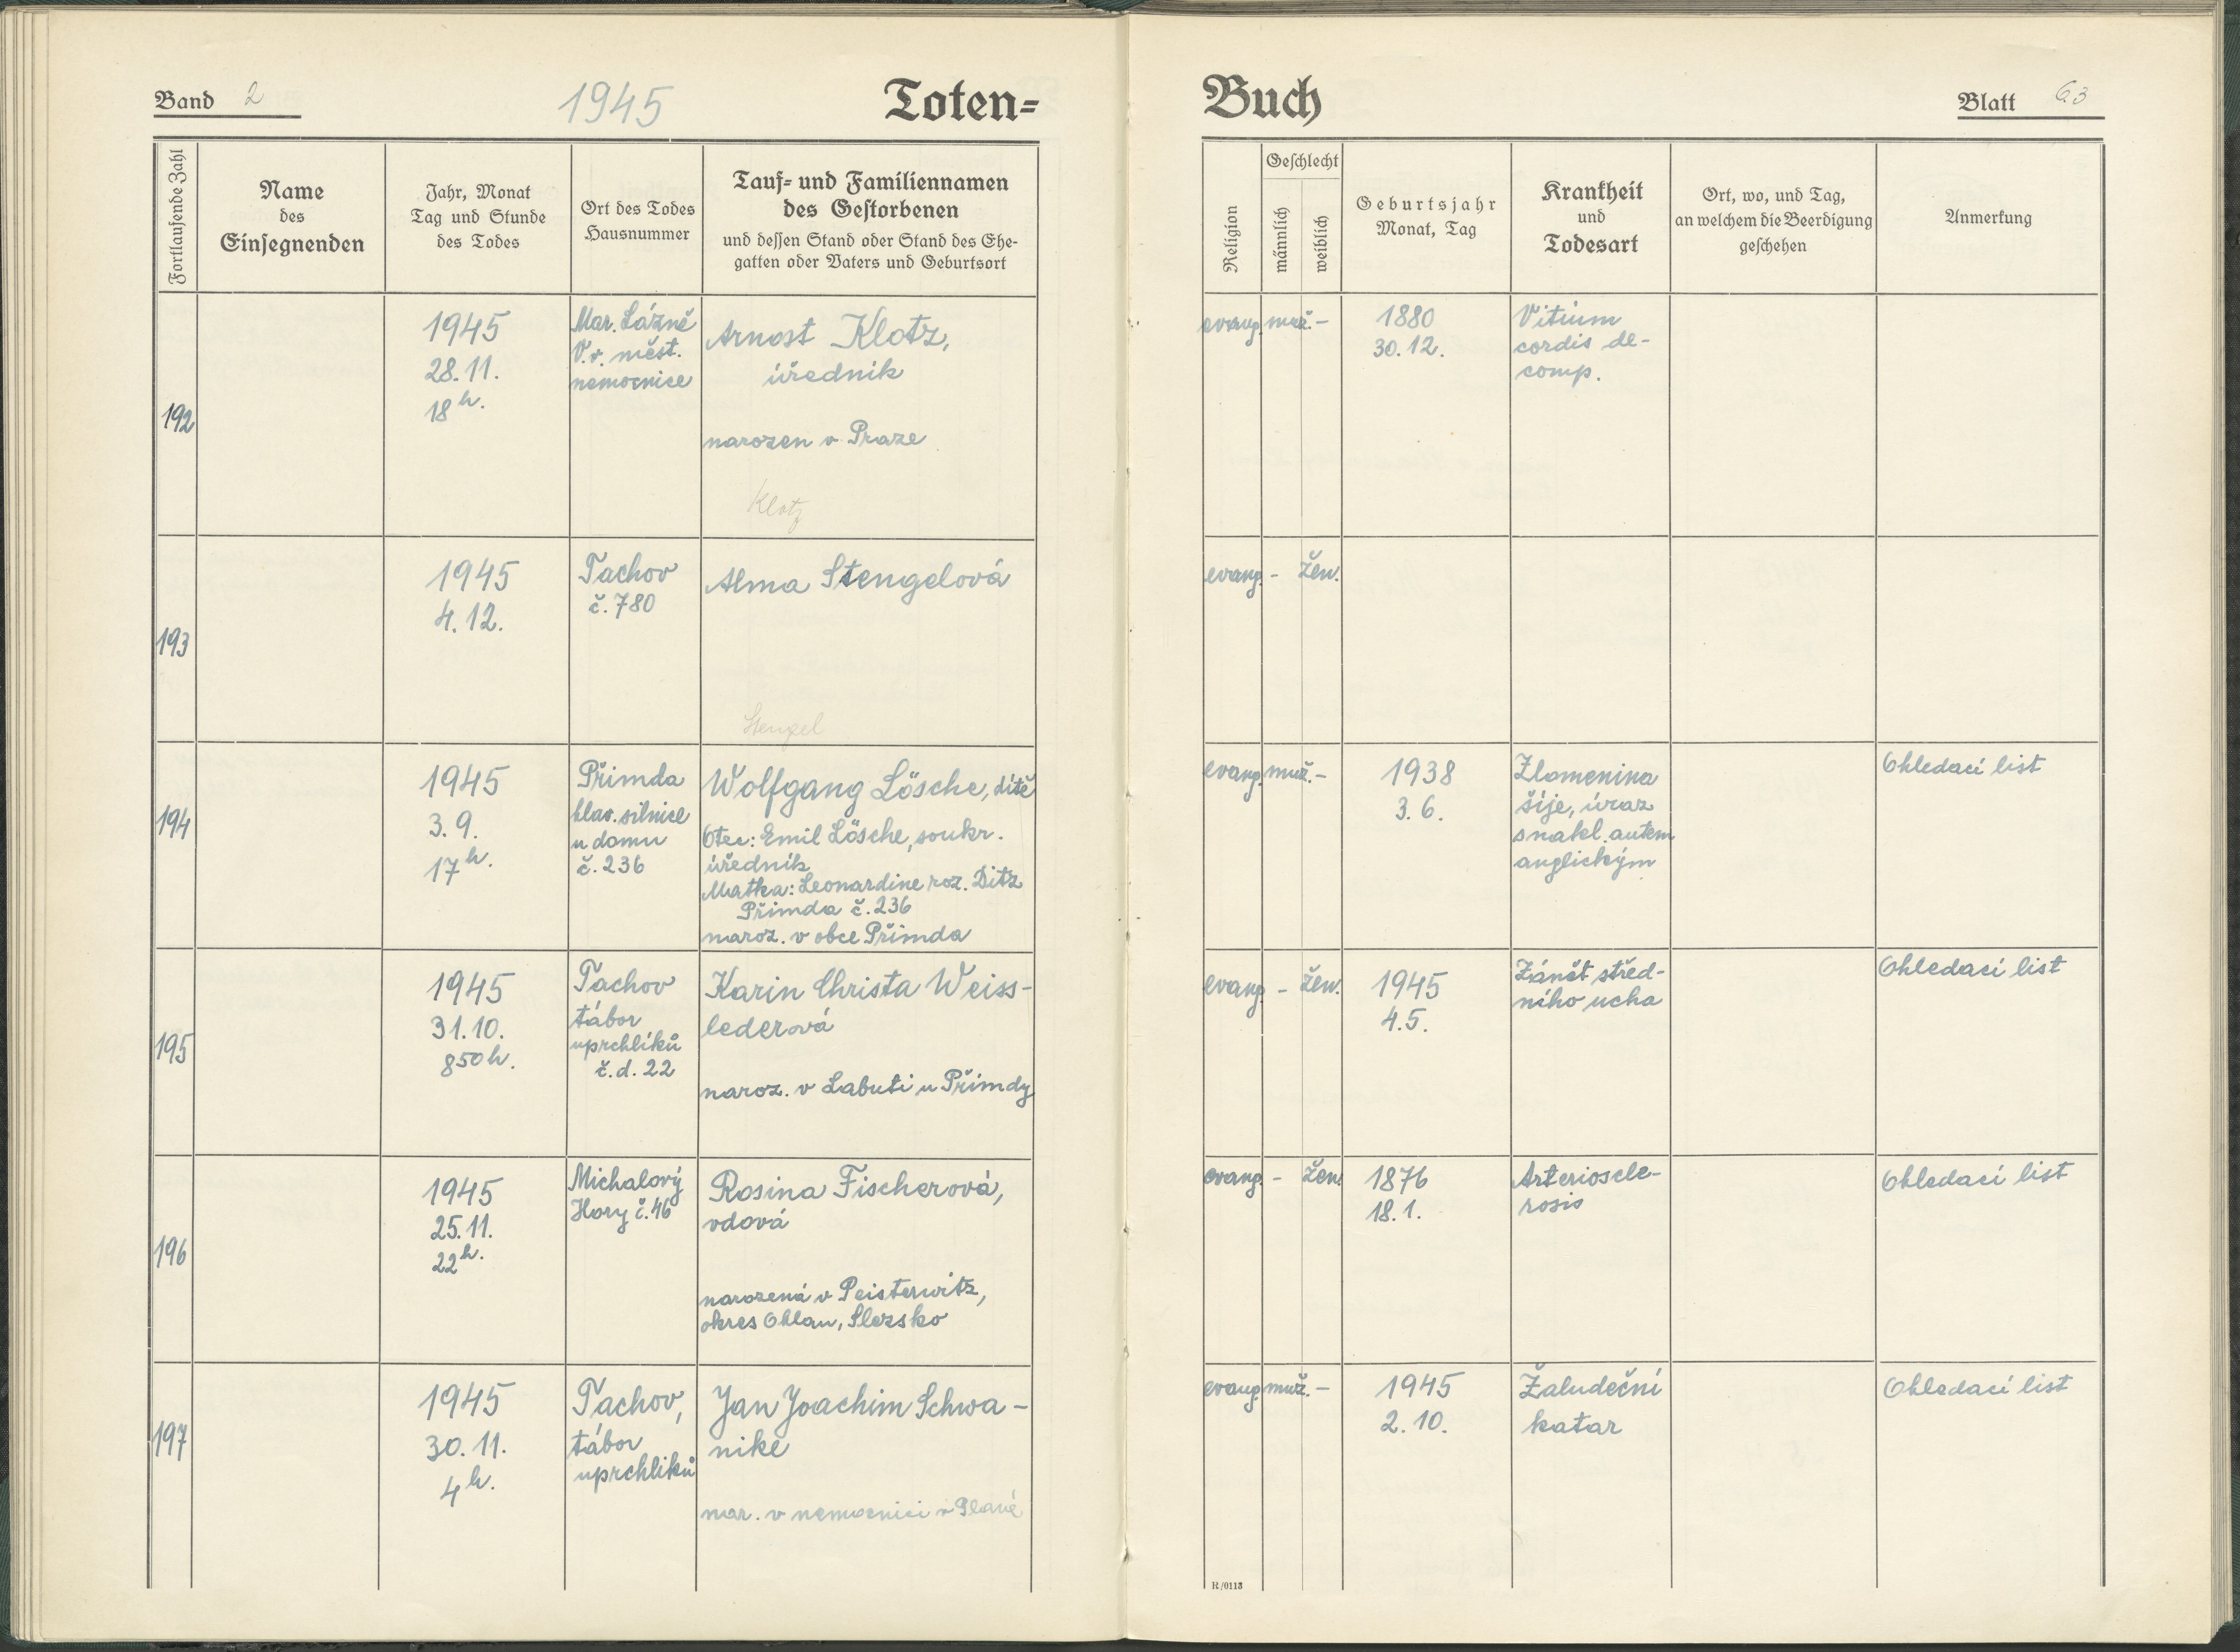 Band 2
1945
Toten-
Buch
Blatt 63
Fortlaufende Zahl
Name
des
Einsegnenden
Jahr, Monat
Tag und Stunde
des Todes
Ort des Todes
Hausnummer
Tauf- und Familiennamen
des Gestorbenen
und dessen Stand oder Stand des Ehe-
gatten oder Vaters und Geburtsort
Religion
Geschlecht
männlich
weiblich
Geburtsjahr
Monat, Tag
Krankheit
und
Todesart
Ort, wo, und Tag,
an welchem die Beerdigung
geschehen
Anmerkung
192
1945
28.11.
18h.
Mar. Lázně
V.v. měst.
nemocnice
Arnost Klotz,
úředník
narozen v Praze
Klotz
evang.
muž.
-
1880
30.12.
Vitium
cordis de-
comp.
193
1945
4.12.
Tachov
č. 780
Alma Stengelová
Stengel
evang.
-
žen.
194
1945
3.9.
17h.
Přimda
hlav. silnice
u domu
č. 236
Wolfgang Lösche, dítě
Otec: Emil Lösche, soukr.
úředník
Matka: Leonardine roz. Ditz
Přimda č. 236
naroz. v obce Přimda
evang.
muž.
-
1938
3.6.
Zlomenina
šíje, úraz
s nákl. autem
anglickým
Ohledací list
195
1945
31.10.
850h.
Tachov
tábor
uprchlíků
č.d. 22
Karin Christa Weiss-
lederová
naroz. v Labuti u Přimdy
evang.
-
žen.
1945
4.5.
Zánět střed-
ního ucha
Ohledací list
196
1945
25.11.
22h.
Michalový
Hory č. 46
Rosina Fischerová,
vdová
narozená v Peisterwitz,
okres Ohlau, Slezsko
evang.
-
žen.
1876
18.1.
Arterioscle-
rosis
Ohledací list
197
1945
30.11.
4h.
Tachov,
tábor
uprchlíků
Jan Joachim Schwa-
nike
nar. v nemocnici v Plané
evang.
muž.
-
1945
2.10.
Žaludeční
katar
Ohledací list
R/0113